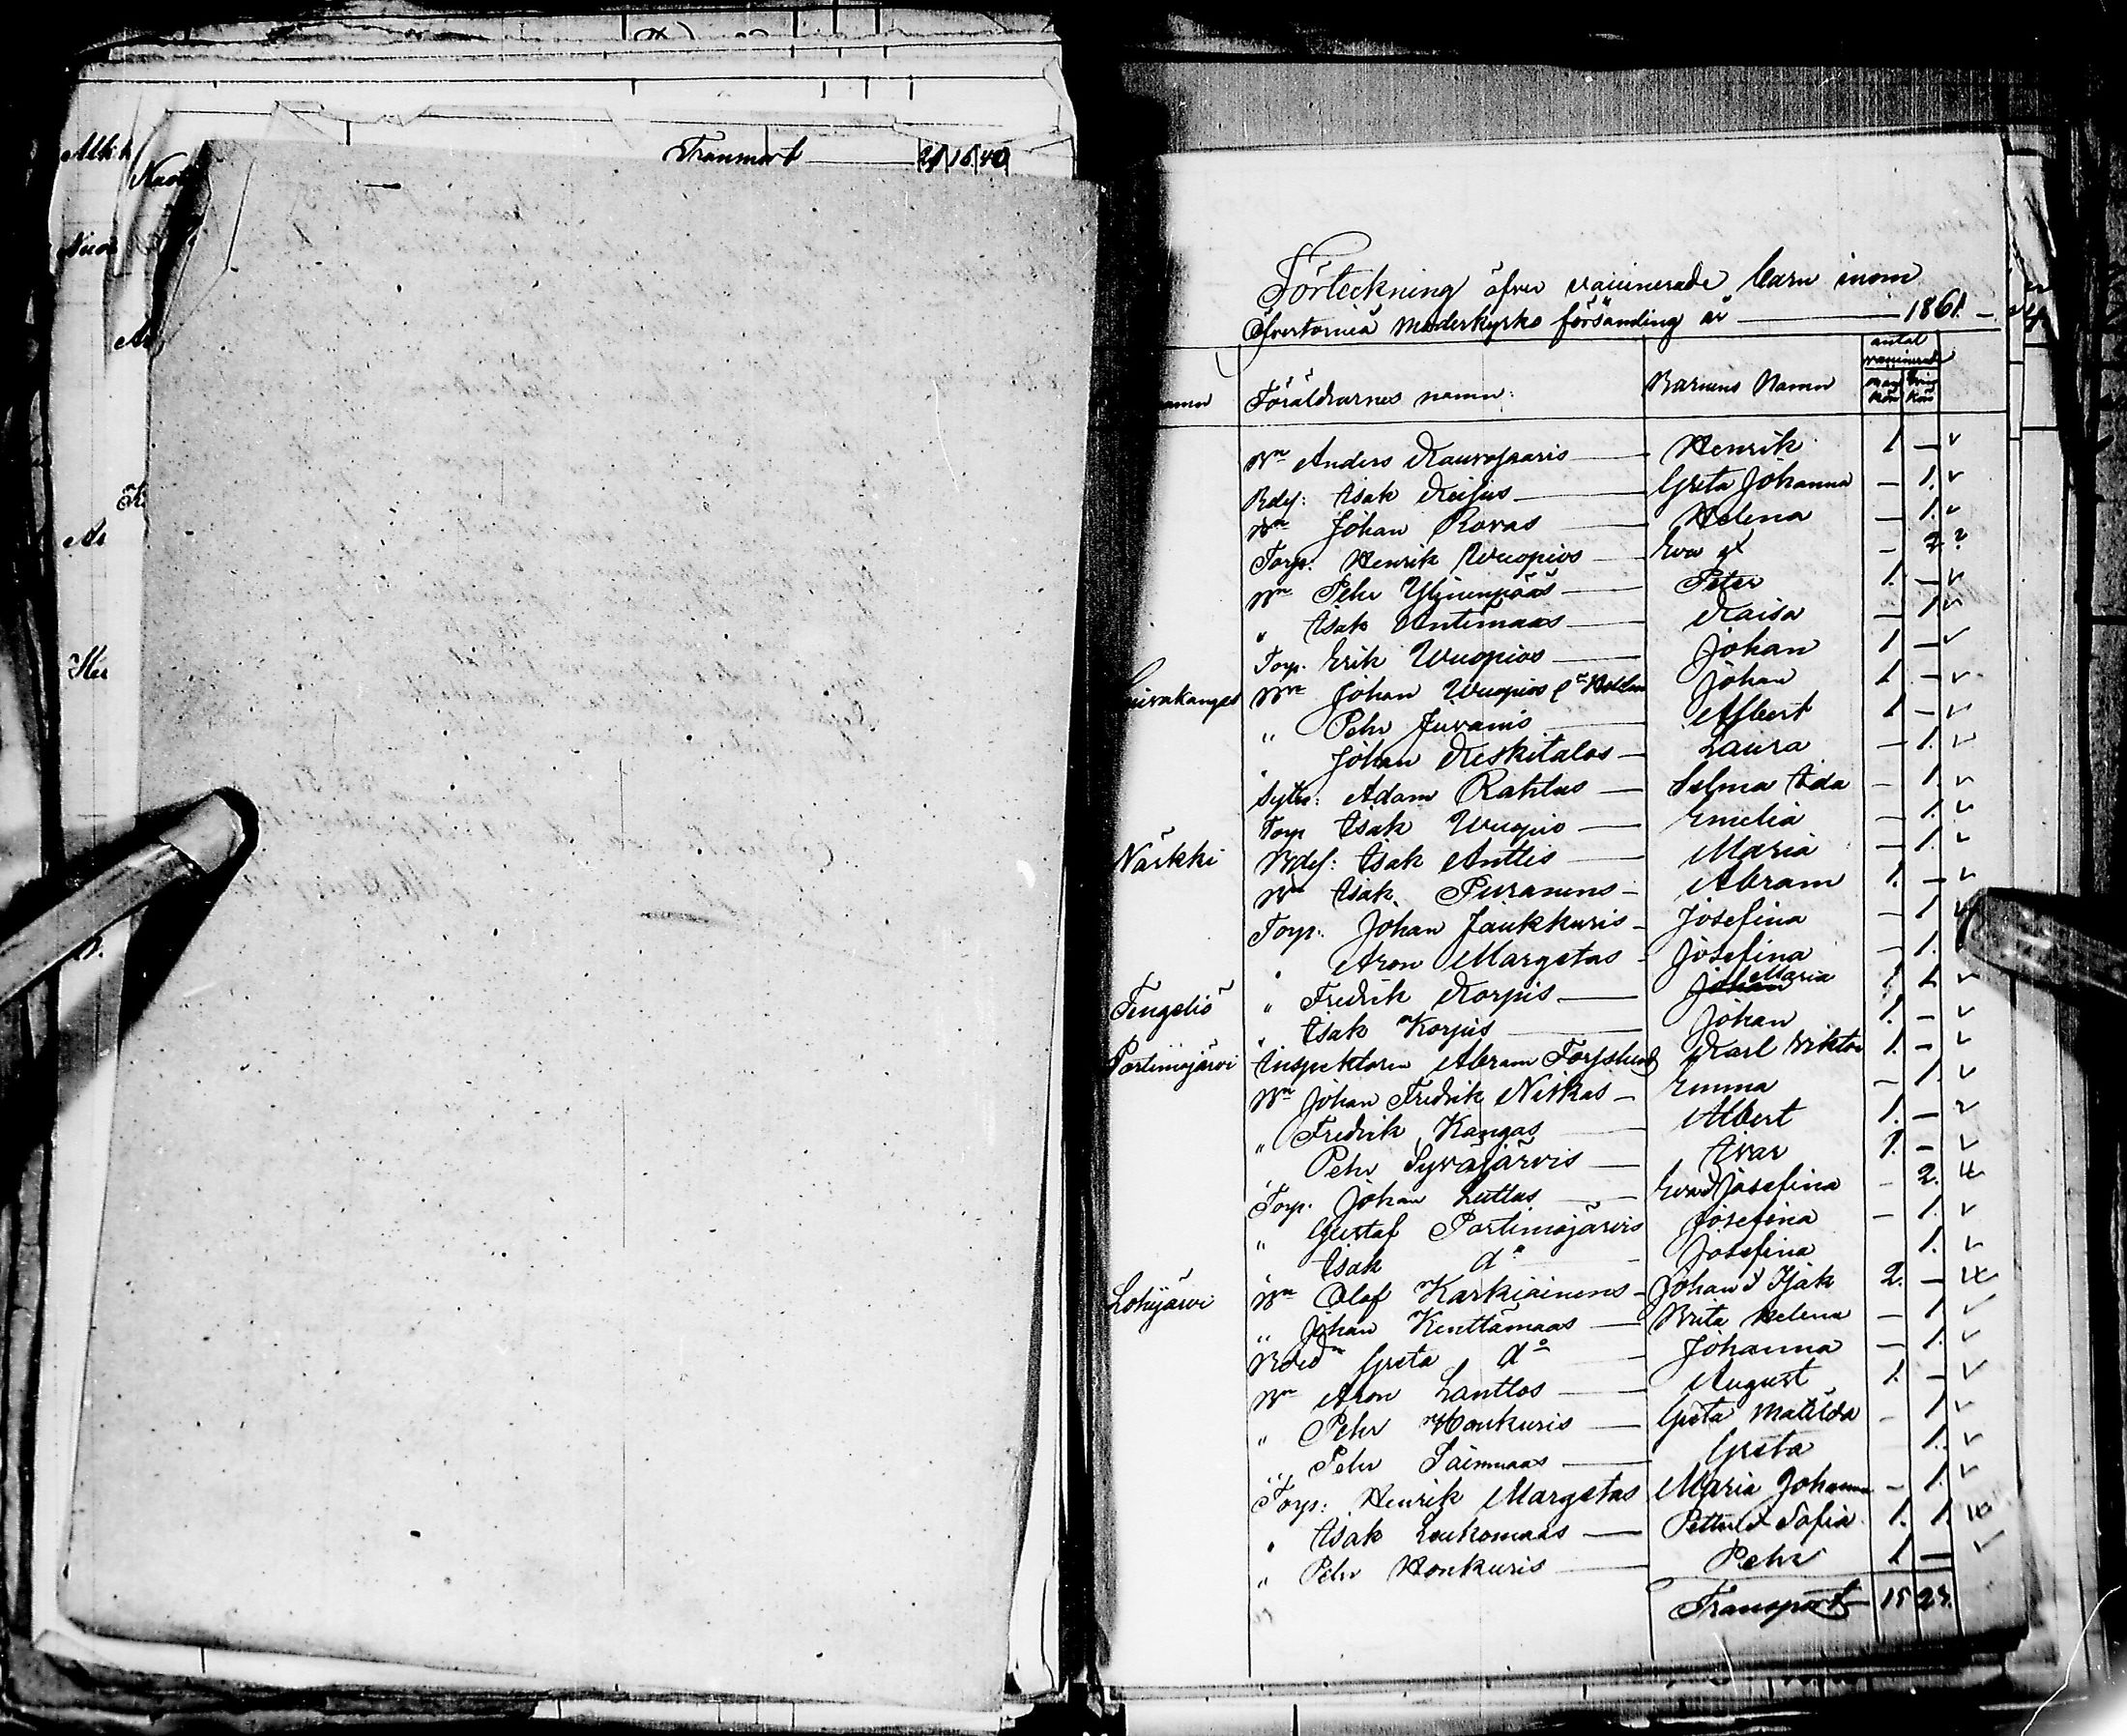 Transport 24 16 40
Förteckning öfver vaccinerade barn inom
Öfvertorneå Moderkyrko församling år 1861.
Föräldrarnes namn. Barnens Namn antal vaccinerade
Man kön Qvin kön
Bn Anders Kauvosaaris Henrik 1 —
Bdef: Isak Greta Johanna — 1.
Bn Johan Rovas Helena — 1.
Torp. Henrik Wuopios Eva — 2
Bn Pehr Ylinenpääs Peter 1. —
" Isak Antimaas Kaisa — 1
Torp. Erik Wuopios Johan 1 —
Bn Johan Wuopios Johan 1 —
" Pehr Juvanis Albert 1 —
" Johan Keskitalos Laura — 1.
Sytn: Adam Rahtus Selma Ida — 1.
Torp Isak Wuopio Emelia — 1.
Närkki Bdef: Isak Anttis Maria — 1.
Bn Isak Puranens Abram 1. —
Torp. Johan Jaukkuris Josefina — 1
" Aron Margetas Josefina — 1.
Tengeliö " Fredrik Korpis Maria 1
" Isak Korpis Johan 1. —
Portimojärvi Inspektoren Abram Forsslund Karl Viktor 1. —
Bn Johan Fredrik Niskas Emma — 1.
" Fredrik Kangas Albert 1. —
" Pehr Syväjärvis Ivar 1. —
Torp. Johan Luttus Eva & Josefina — 2.
" Gustaf Portimojärvis Josefina — 1.
" Isak do Josefina 1.
Lohijärvi Bn Olof Karkiainens Johan & Isak 2. —
" Johan Kenttämaas Brita Helena — 1
Greta do Johanna — 1.
Bn Aron Lanttos August 1. —
" Pehr Honkuris Greta Matilda — 1
" Pehr Saimaas Greta 1.
Torp: Henrik Margetas Maria Johanna — 1.
" Isak Loukomaas Petter & Sofia 1. 1.
" Pehr Honkuris Pehr 1 —
Transport 15 23.